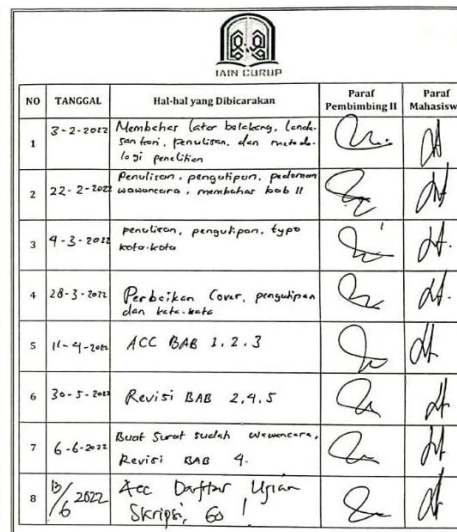 IAIN CURUP
NO TANGGAL Hal-hal yang Dibicarakan Paraf Pembimbing II Paraf Mahasisw
1 3-2-2022 Membahas latar belakang, landa-
san teori, penulisan, dan metodo-
logi penelitian
2 22-2-2022 Penulisan, pengutipan, pedoman
wawancara, membahas bab II
3 9-3-2022 penulisan, pengutipan, typo
kata-kata
4 28-3-2022 Perbaikan Cover, pengutipan
dan kata-kata
5 11-4-2022 ACC BAB 1, 2, 3
6 30-5-2022 Revisi BAB 2, 4, 5
7 6-6-2022 Buat Surat sudah wawancara,
Revisi BAB 4.
8 13/6 2022 Acc Daftar Ujian
Skripsi,